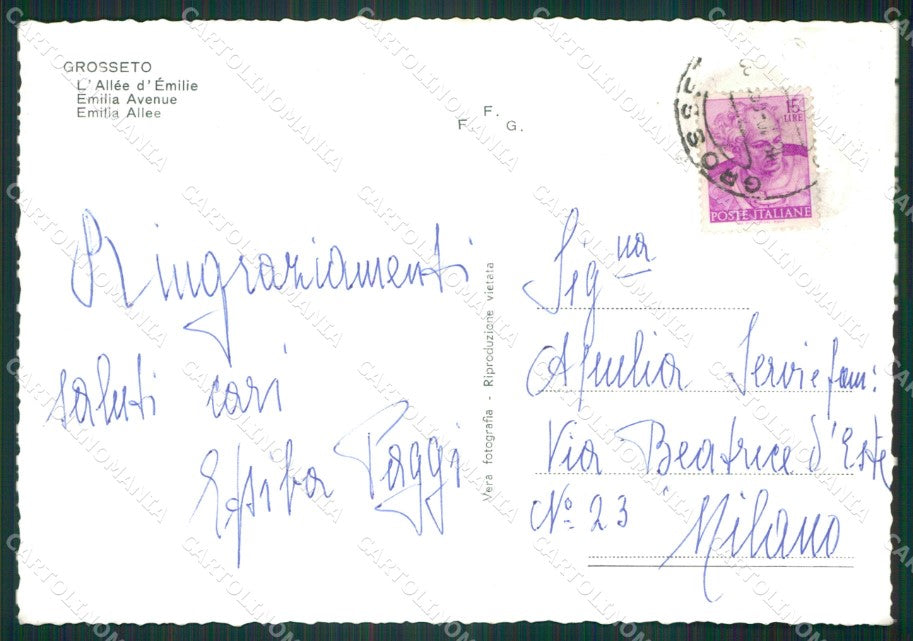 GROSSETO
L'Allée d'Émilie
Emilia Avenue
Emilia Allee
F.
F. G.
15
LIRE
POSTE ITALIANE
GROSSE
Ringraziamenti
saluti cari
Paggi
Vera fotografia - Riproduzione vietata
Sig na
Servi e fam:
Via Beatrice d'Este
No. 23
Milano
CARTOLINOMANIA